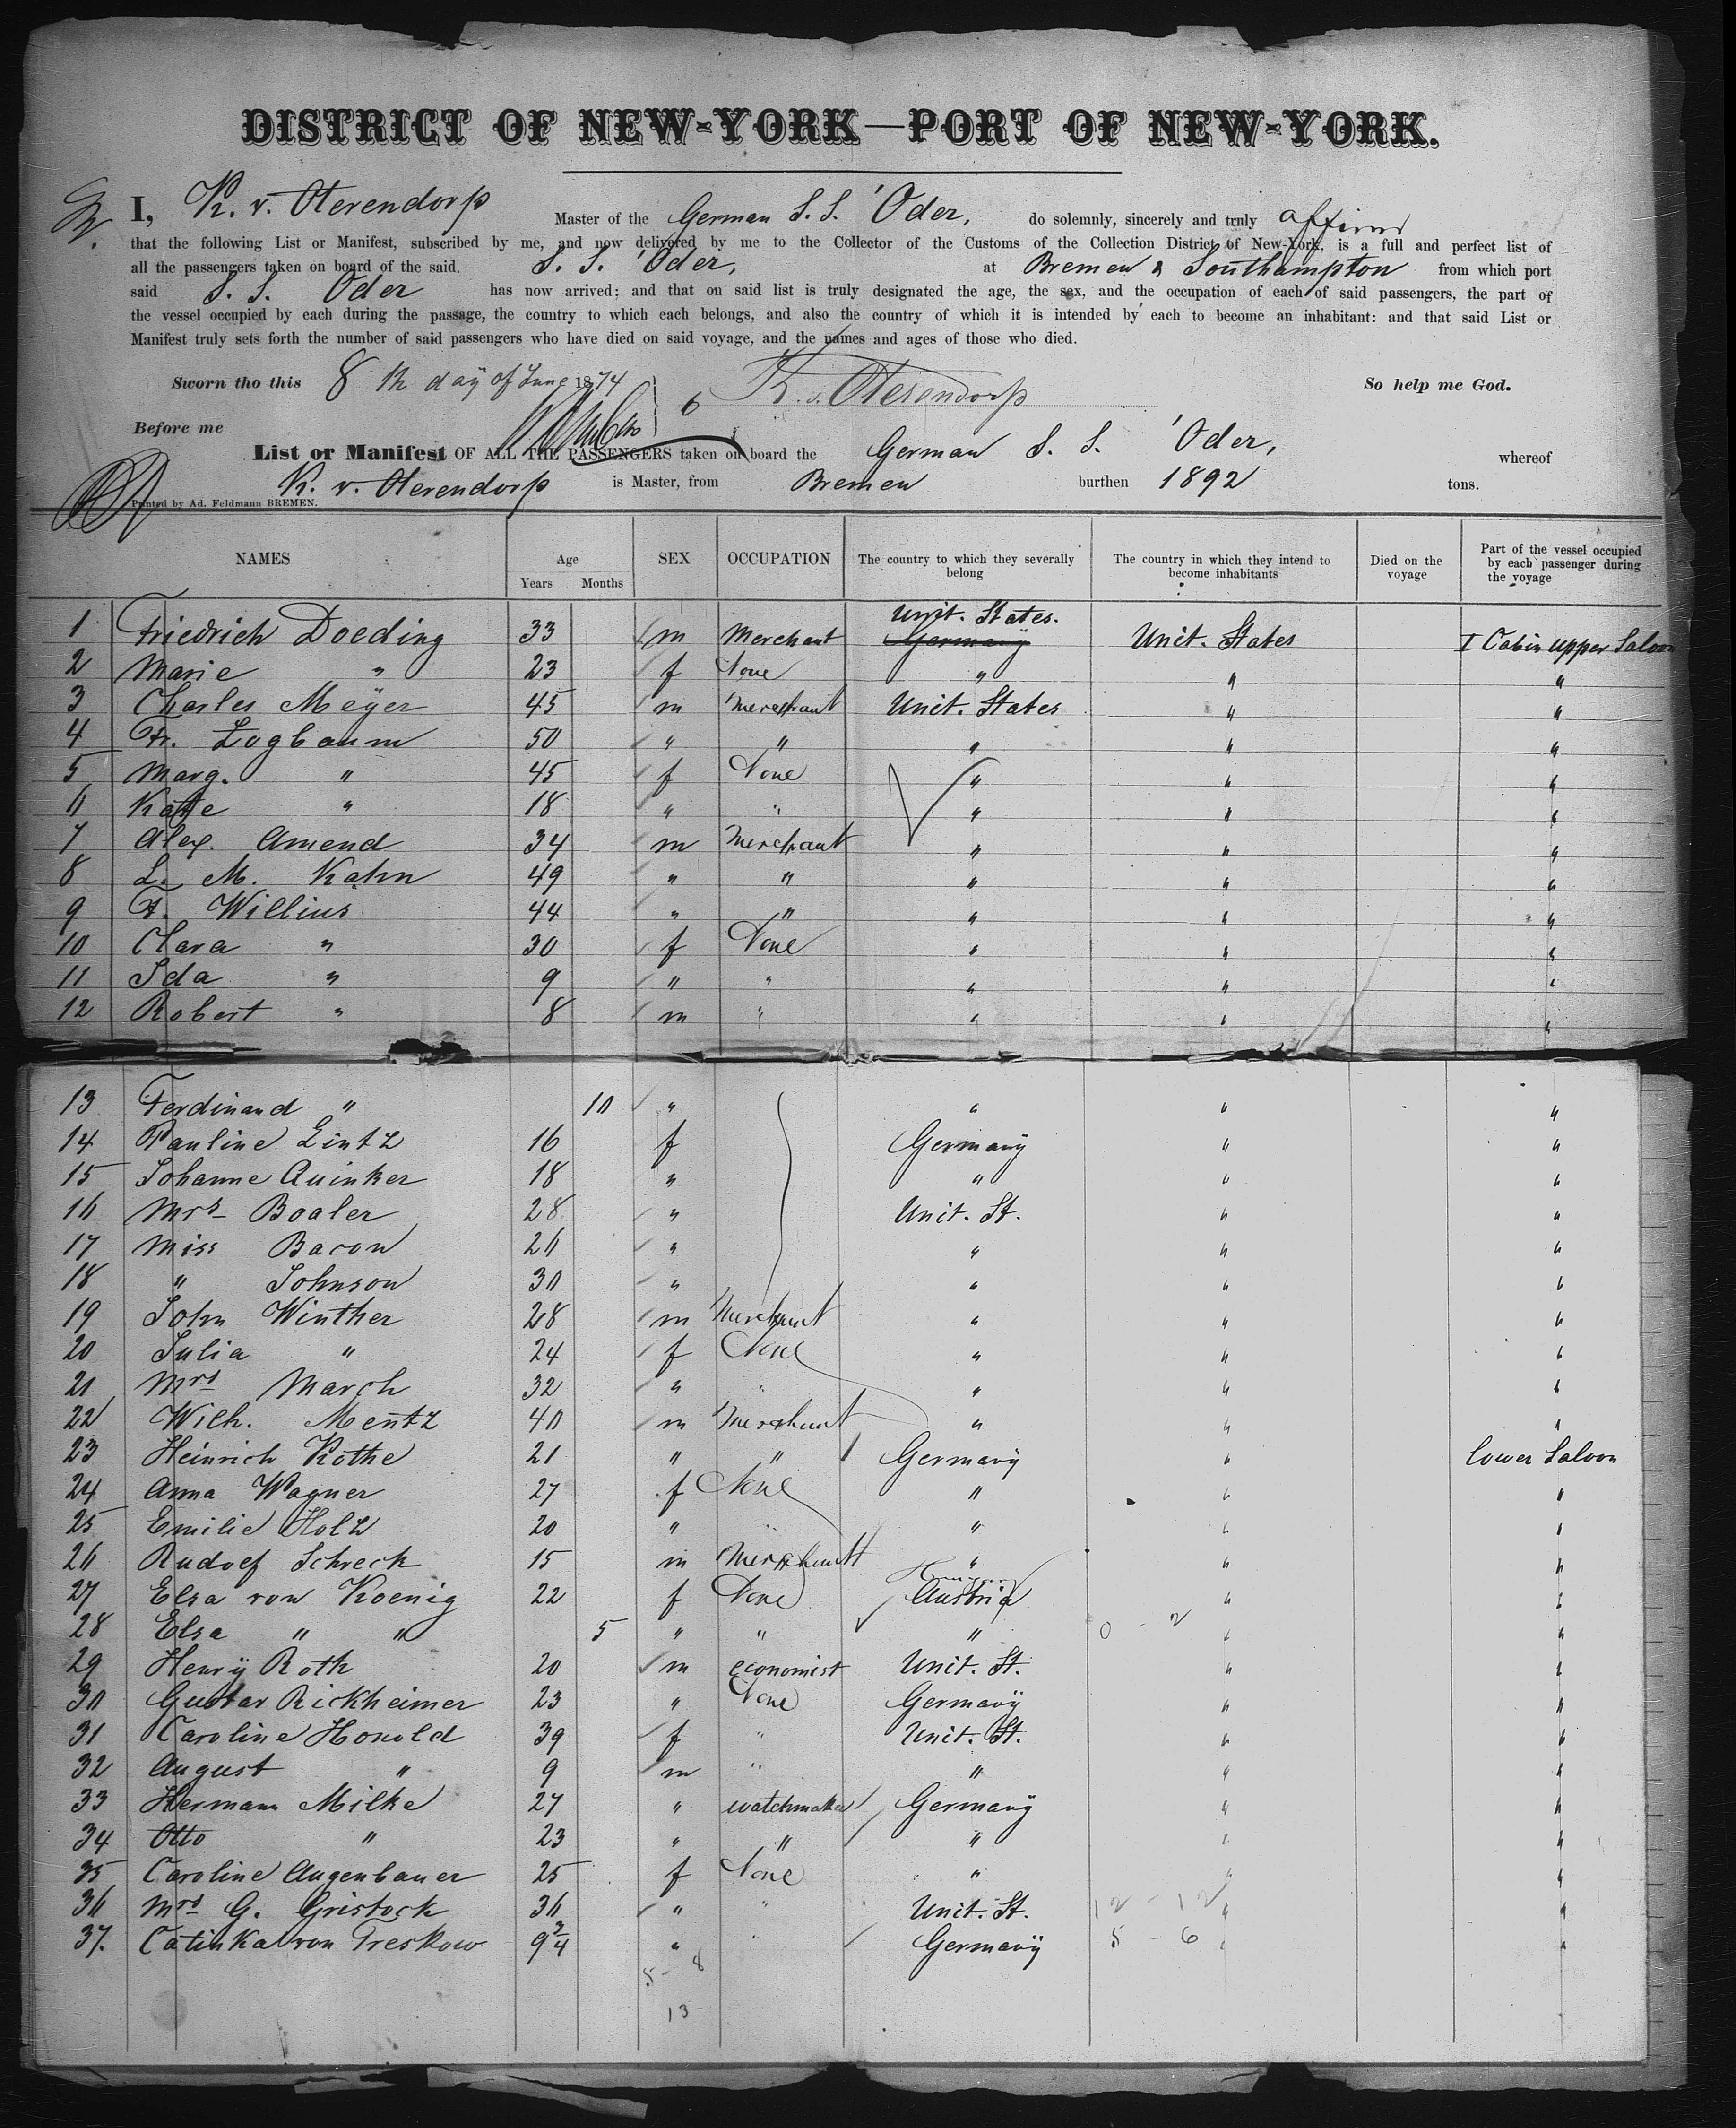 DISTRICT OF NEW-YORK—PORT OF NEW-YORK.
I, K. v. Oterendorp Master of the German S. S. 'Oder, do solemnly, sincerely and truly affirm
that the following List or Manifest, subscribed by me, and now delivered by me to the Collector of the Customs of the Collection District of New-York, is a full and perfect list of
all the passengers taken on board of the said. S. S. 'Oder, at Bremen & Southampton from which port
said S. S. Oder has now arrived; and that on said list is truly designated the age, the sex, and the occupation of each of said passengers, the part of
the vessel occupied by each during the passage, the country to which each belongs, and also the country of which it is intended by each to become an inhabitant: and that said List or
Manifest truly sets forth the number of said passengers who have died on said voyage, and the names and ages of those who died.
Sworn tho this 8 th day of June 1874 K. v. Oterendorp So help me God.
Before me
List or Manifest OF ALL THE PASSENGERS taken on board the German S. S. 'Oder, whereof
K. v. Oterendorp is Master, from Bremen burthen 1892 tons.
Printed by Ad. Feldmann BREMEN.
NAMES Age Years Months SEX OCCUPATION The country to which they severally belong The country in which they intend to become inhabitants Died on the voyage Part of the vessel occupied by each passenger during the voyage
Unit. States.
1 Friedrich Doeding 33 m Merchant Germany Unit. States I Cabin upper Saloon
2 Marie " 23 f None " " "
3 Charles Meyer 45 m Merchant Unit. States " "
4 Fr. Logbaum 50 " " " " "
5 Marg. " 45 f None " " "
6 Kate " 18 " " " " "
7 Alex. Amend 34 m Merchant " " "
8 L. M. Kahn 49 " " " " "
9 F. Willius 44 " " " " "
10 Clara " 30 f None " " "
11 Ida " 9 " " " " "
12 Robert " 8 m " " " "
13 Ferdinand " 10 " " " "
14 Pauline Lintz 16 f Germany " "
15 Johanne Quinker 18 " " " "
16 Mrs Boaler 28 " Unit. St. " "
17 Miss Bacon 26 " " " "
18 " Johnson 30 " " " "
19 John Winther 28 m Merchant " " "
20 Julia " 24 f None " " "
21 Mrs March 32 " " " " "
22 Wilh. Mentz 40 m Merchant " " "
23 Heinrich Kothe 21 " " Germany " lower Saloon
24 Anna Wagner 27 f None " " "
25 Emilie Holz 20 " " " " "
26 Rudolf Schreck 15 m Merchant " " "
27 Elsa von Koenig 22 f None Austria " "
28 Elsa " " 5 " " " 0 - 2 " "
29 Henry Roth 20 m economist Unit. St. " "
30 Gustav Rickheimer 23 " None Germany " "
31 Caroline Honold 39 f " Unit. St. " "
32 August " 9 m " " " "
33 Hermann Milke 27 " watchmaker Germany " "
34 Otto " 23 " " " " "
35 Caroline Augenbauer 25 f None " " "
36 Mrs G. Gristock 36 " " Unit. St. 12 - 12 " "
37. Catinka von Treskow 9 3/4 " " Germany 5 - 6 " "
5 - 8
13